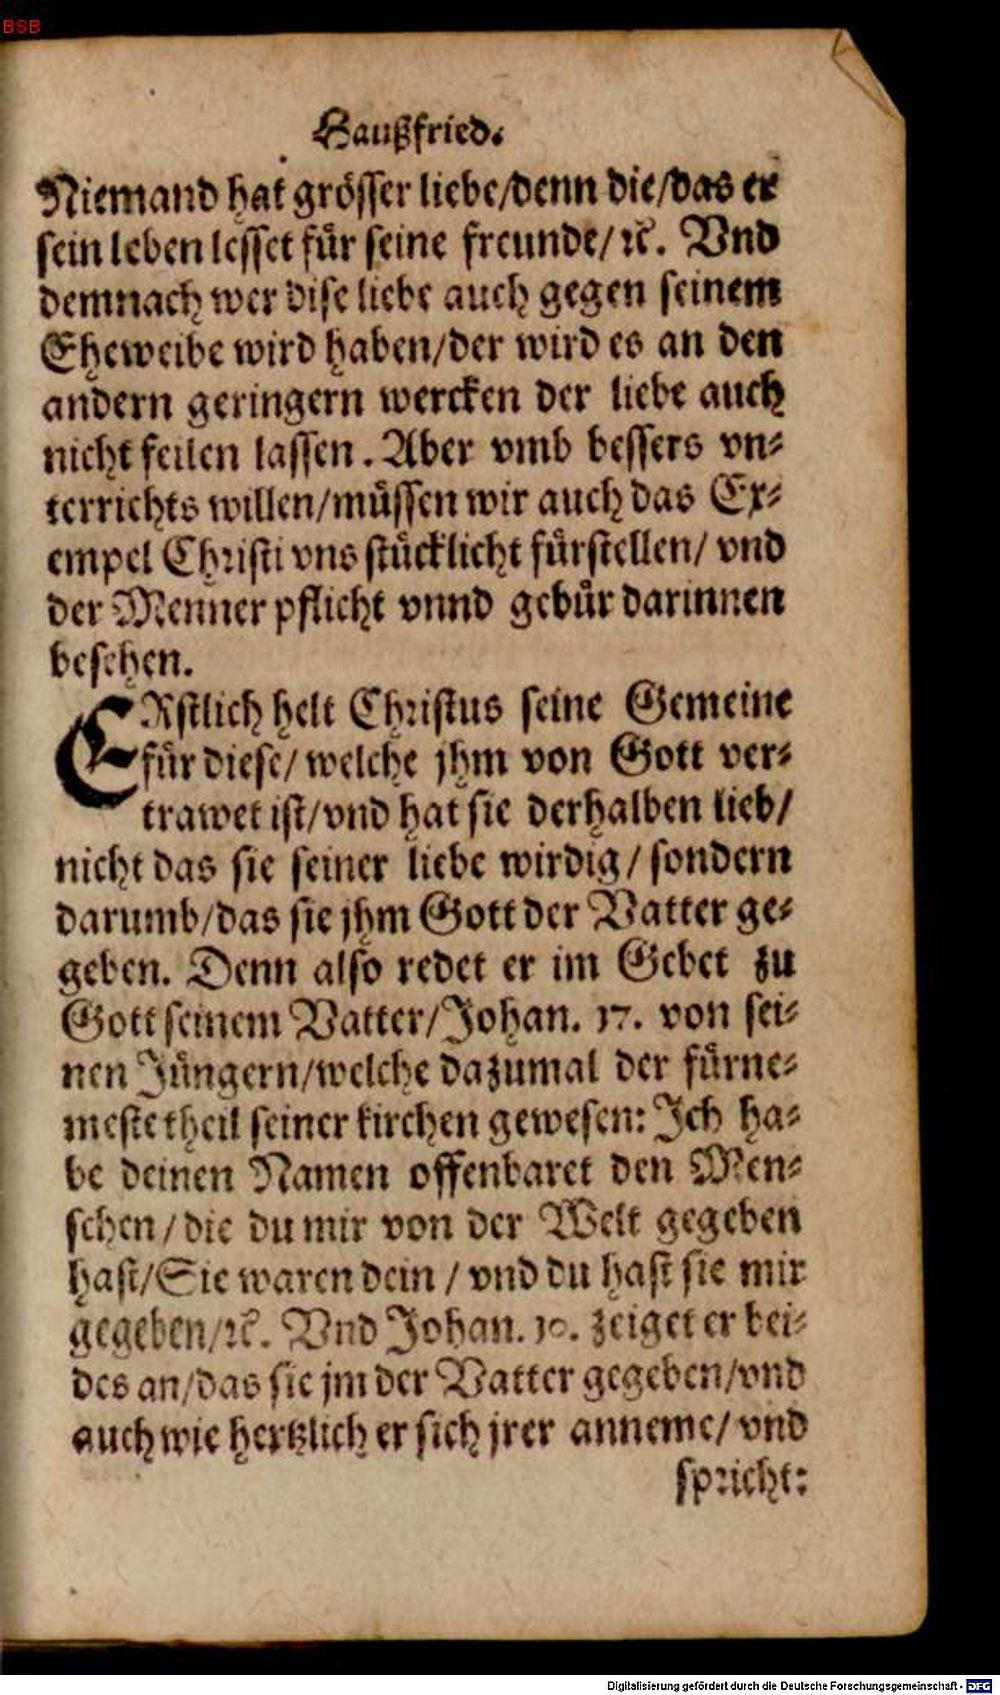 BSB
Haußfried.
Niemand hat grösser liebe/denn die/das er
sein leben lesset für seine freunde/ꝛc. Vnd
demnach wer dise liebe auch gegen seinem
Eheweibe wird haben/der wird es an den
andern geringern wercken der liebe auch
nicht feilen lassen. Aber vmb bessers vn-
terrichts willen/müssen wir auch das Ex-
empel Christi vns stücklicht fürstellen/ vnd
der Menner pflicht vnnd gebür darinnen
besehen.
ERstlich helt Christus seine Gemeine
für diese/ welche jhm von Gott ver-
trawet ist/vnd hat sie derhalben lieb/
nicht das sie seiner liebe wirdig/ sondern
darumb/das sie jhm Gott der Vatter ge-
geben. Denn also redet er im Gebet zu
Gott seinem Vatter/Johan. 17. von sei-
nen Jüngern/welche dazumal der fürne-
meste theil seiner kirchen gewesen: Ich ha-
be deinen Namen offenbaret den Men-
schen/die du mir von der Welt gegeben
hast/Sie waren dein / vnd du hast sie mir
gegeben/ꝛc. Vnd Johan. 10. zeiget er bei-
des an/das sie jm der Vatter gegeben/vnd
auch wie hertzlich er sich jrer anneme/ vnd
spricht:
Digitalisierung gefördert durch die Deutsche Forschungsgemeinschaft - DFG